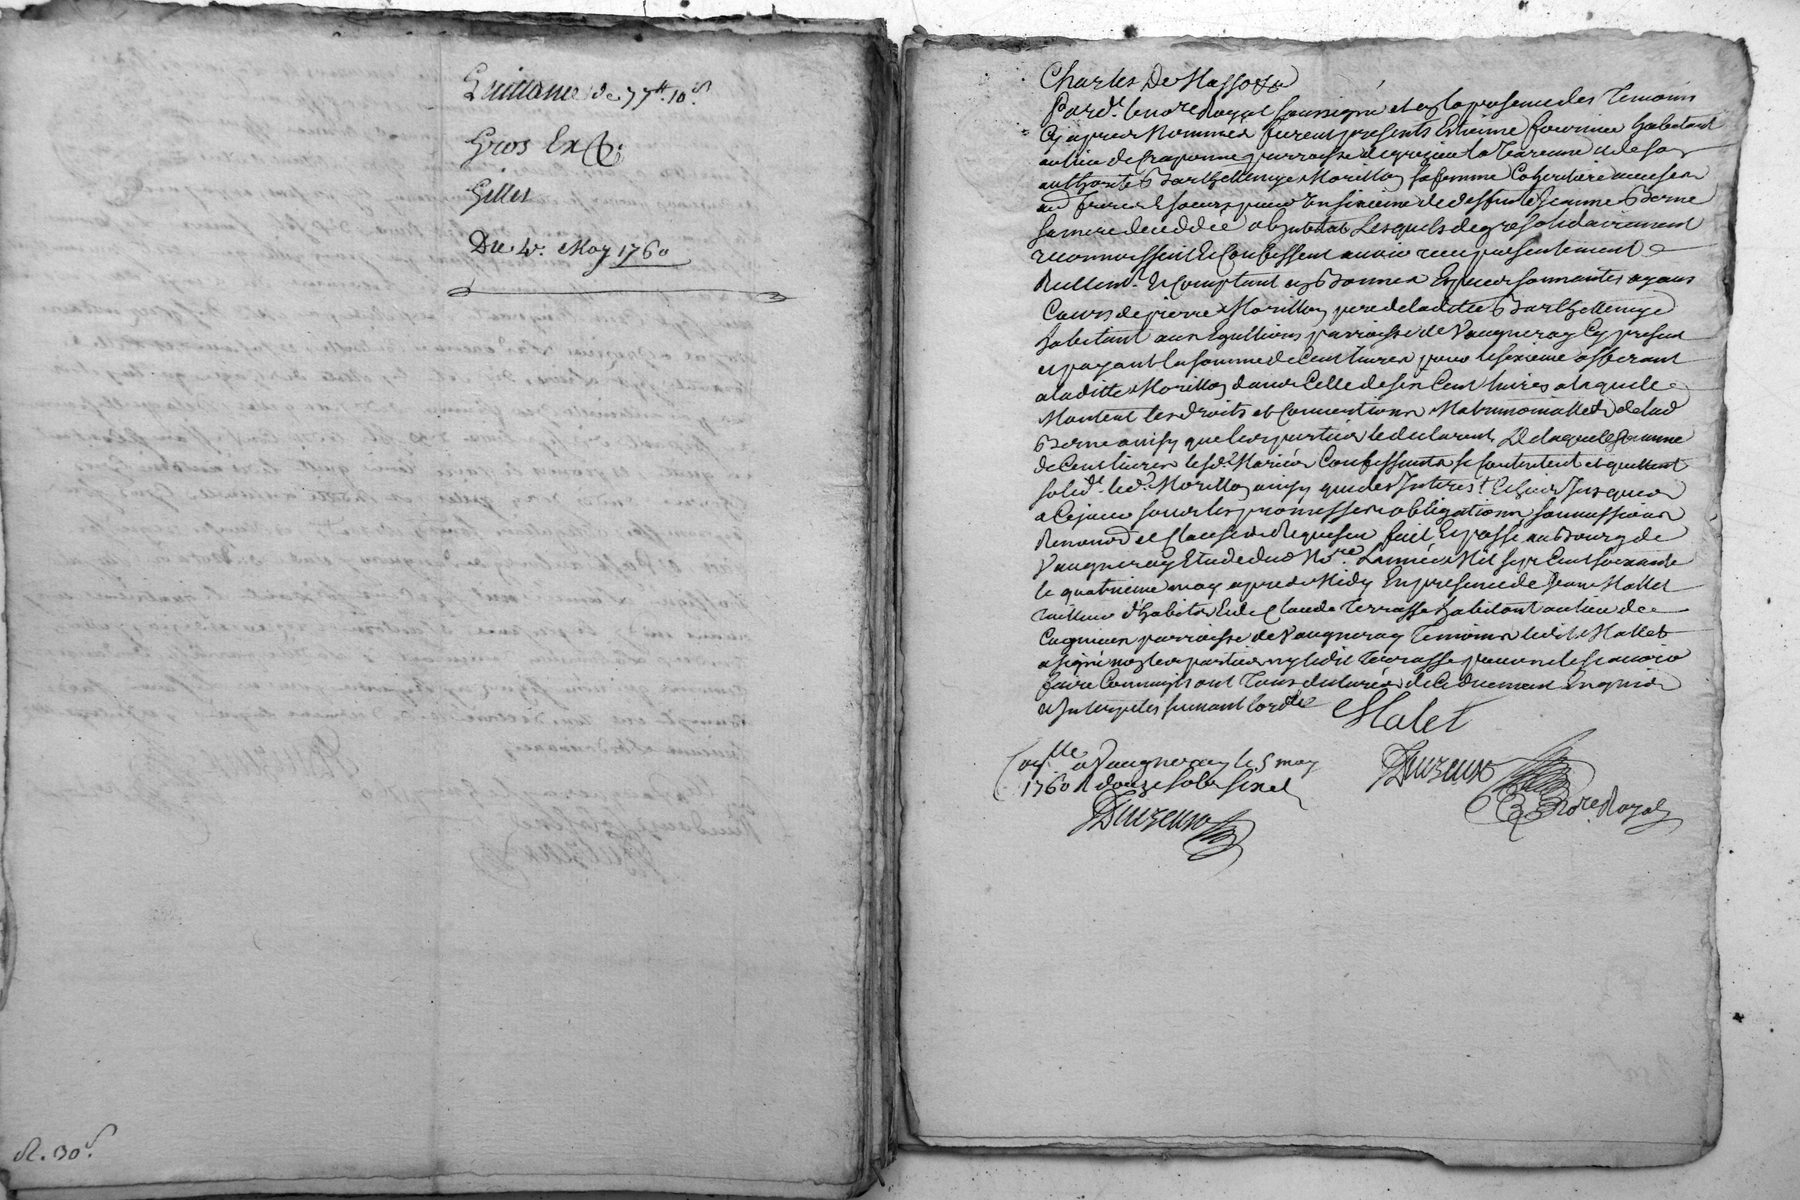 Quittance de 77tt. 10s.
Gros Ex
Gilles
Du 4e. May 1760
R. 30s.
Charles De Masso
Pard.t le no.re Royal soussigné et en la presence des Temoins
Cy apres Nommés furent presents Estienne fournier habitant
au lieu de Craponne parroisse de grezieu la Varenne et de son
authorité Barthellemye Morillon sa femme Coheritiere avec ses
freres & soeurs pour un sixieme de deffunte Jeanne Berne
sa mere deceddée abintestat Lesquels de gré solidairement
reconnoissent & Confessent avoir reçu presentement
Reellem.t & Comptant en Bonnes Especes sonnantes ayans
Cours de pierre Morillon pere de la ditte Barthellemye
habitant aux parroisse de Vaugneray Cy present
et payant la somme de Cent livres pour le sixieme afferant
a la ditte Morillon dans Celle de six Cent livres a laquelle
Montent les droits et Conventions Matrimonialles de lad
Berne ainsy que les parties le declarent, De laquelle somme
de Cent livres les d. Mariés Confessants se Contentent et quittent
solid.t led. Morillon ainsy que des Interests Echeus Jusques
a Ce jour sous les promesses obligations soumissions
Renond et Clauses Requises fait & passé au Bourg de
Vaugneray Etude dud No.re L'année Mil sept Cent soixante
le quatrieme may apres Midy En presence de Jean Mallet
Tailleur d'habits & de Claude Terrasse habitant au lieu de
parroisse de Vaugneray Temoins ledit Mallet
a signé non les parties ny ledit Terrasse pour ne le scavoir
faire Comme ils ont Tous declarés de Ce duement Enquis
& Interpelés suivant l'ord.ce
Malet
Con.lle a Vaugneray le 5 may
1760 R douze sols six d
Duzeux
Duzeux
No.re Royal